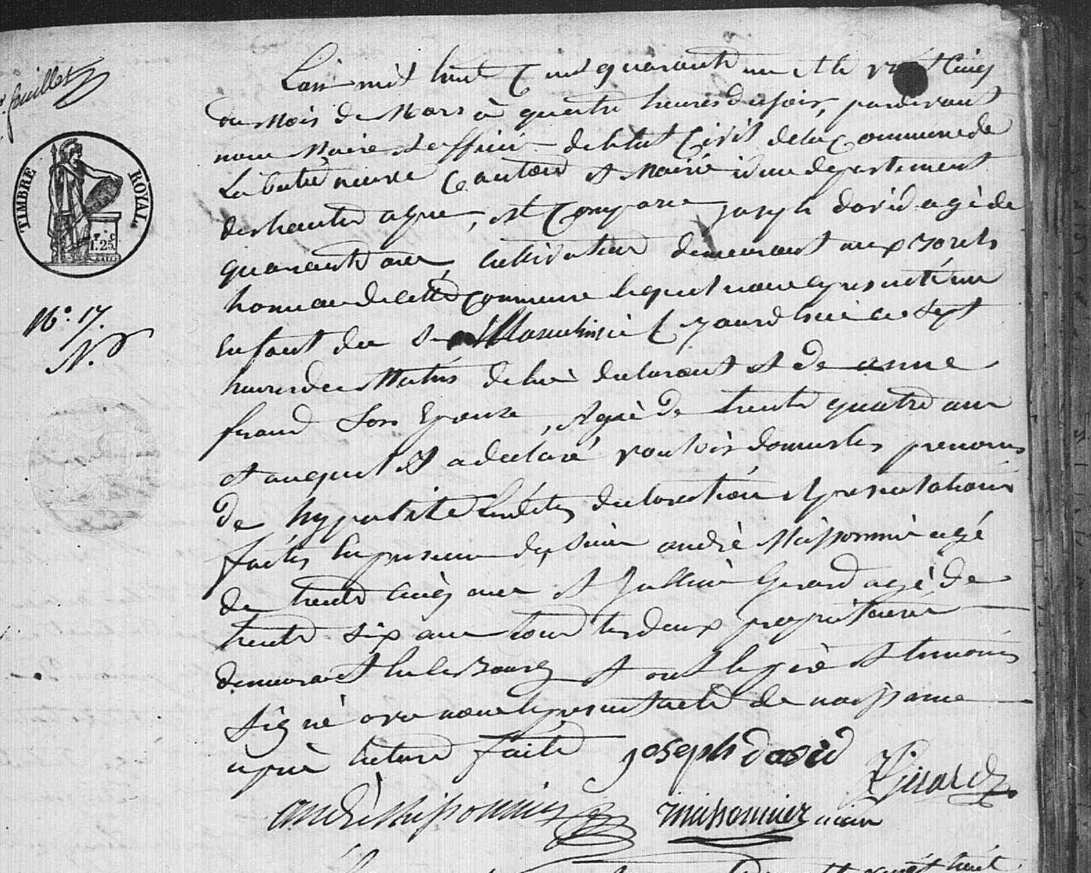 feuillet
TIMBRE ROYAL
1.25
N.° 17.
N. D
L'an mil huit Cent quarante un et le vingt Cinq
du mois de Mars à quatre heures du soir, pardevant
nous Maire et officier de l'état Civil de la Commune de
Labatie neuve Canton et Mairie idem departement
des hautes alpes, est Comparu joseph david agé de
quarante ans, cultivateur demeurant aux
hameau de cette Commune lequel nous a presenté un
enfant du Sexe Masculin né aujourd'hui a sept
heures du Matin de lui declarant et de anne
son epouse, agée de trente quatre ans
et auquel il a declaré vouloir donner les prenoms
de hypolite Lesdites declaration et presentation
faites En presence des sieurs andré Missonnier agé
de trente cinq ans et Jullien Girard agé de
trente six ans tous les deux proprietaires
demeurant en ce Bourg et ont le père et temoins
Signé avec nous le present acte de naissance
après lecture faite joseph david
Girard
andré Missonnier missonnier maire